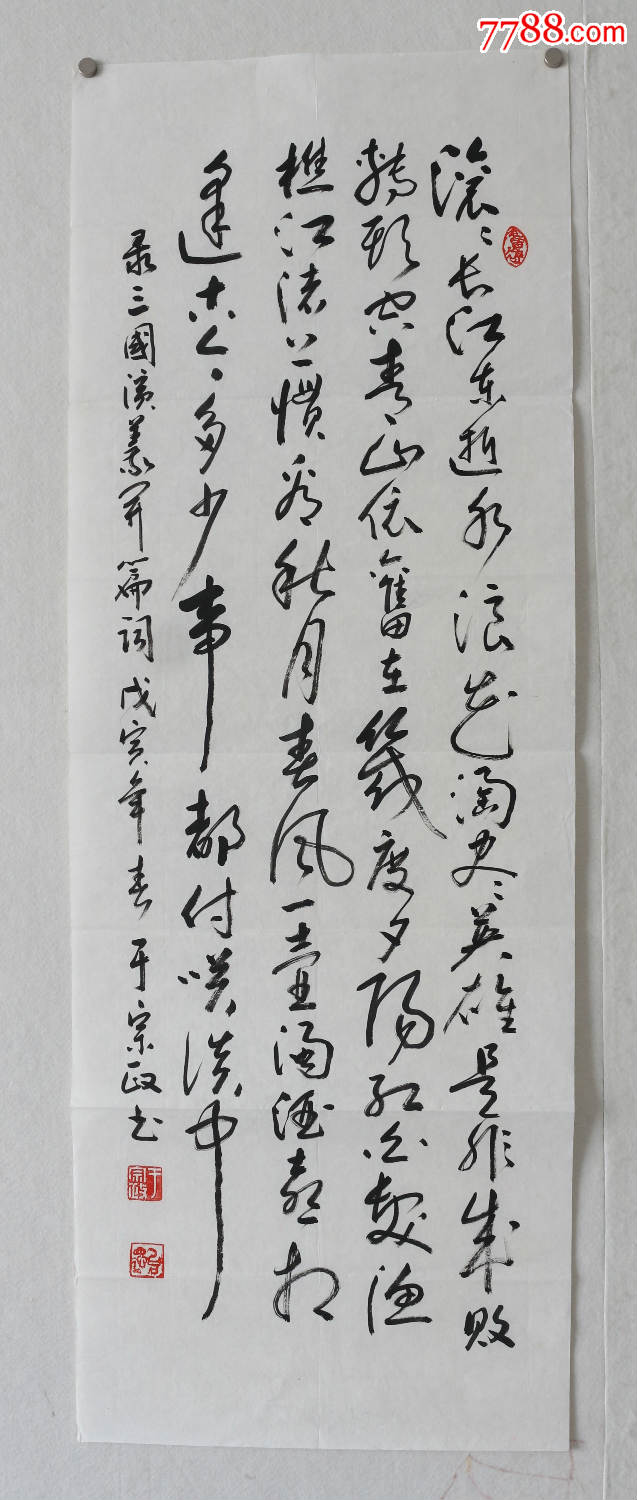 7788.com
滚〻长江东逝水浪花淘尽英雄是非成败
转头空青山依舊在幾度夕阳红白髮渔
樵江渚上惯看秋月春风一壶浊酒喜相
逢古今多少事都付笑谈中
录三國演義开篇词戊寅年春于宗政书